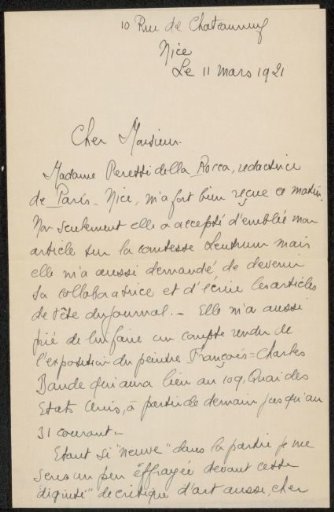 10 Rue de Chateauneuf
Nice
Le 11 mars 1921
Cher Monsieur
Madame Peretti della Rocca, redactrice
de Paris-Nice, m'a fort bien reçue ce matin
Non seulement elle a accepté d'emblée mon
article sur la comtesse mais
elle m'a aussi demandé de devenir
sa collaboratrice et d'écrire les articles
de tête du journal. - Elle m'a aussi
prié de lui faire un compte rendu de
l'exposition du peintre François-Charles
Baude qui aura lieu au 109, Quai des
Etats Unis, à partir de demain jusqu'au
31 courant -
Etant si "neuve" dans la partie je me
sens un peu effrayée devant cette
"dignité" de critique d'art aussi, cher